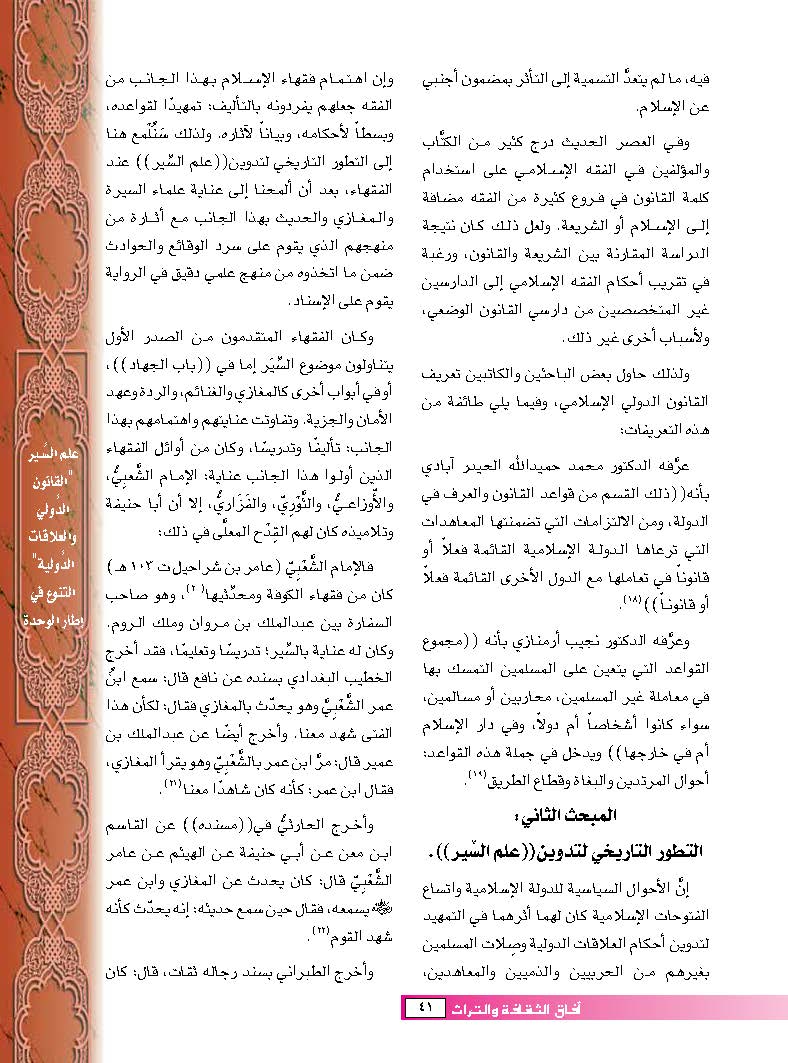 فيه، ما لم يتعدَّ التسمية إلى التأثر بمضمون أجنبي
عن الإسلام.
وفي العصر الحديث درج كثير من الكتَّاب
والمؤلفين في الفقه الإسلامي على استخدام
كلمة القانون في فروع كثيرة من الفقه مضافة
إلى الإسلام أو الشريعة. ولعل ذلك كان نتيجة
الدراسة المقارنة بين الشريعة والقانون، ورغبة
في تقريب أحكام الفقه الإسلامي إلى الدارسين
غير المتخصصين من دارسي القانون الوضعي،
ولأسباب أخرى غير ذلك.
ولذلك حاول بعض الباحثين والكاتبين تعريف
القانون الدولي الإسلامي، وفيما يلي طائفة من
هذه التعريفات:
عرَّفه الدكتور محمد حميدالله الحيدر آبادي
بأنه((ذلك القسم من قواعد القانون والعرف في
الدولة، ومن الالتزامات التي تضمنتها المعاهدات
التي ترعاها الدولة الإسلامية القائمة فعلاً أو
قانوناً في تعاملها مع الدول الأخرى القائمة فعلاً
أو قانوناً))(١٨).
وعرَّفه الدكتور نجيب أرمنازي بأنه ((مجموع
القواعد التي يتعين على المسلمين التمسك بها
في معاملة غير المسلمين، محاربين أو مسالمين،
سواء كانوا أشخاصاً أم دولاً، وفي دار الإسلام
أم في خارجها)) ويدخل في جملة هذه القواعد:
أحوال المرتدين والبغاة وقطاع الطريق(١٩).
المبحث الثاني:
التطور التاريخي لتدوين((علم السِّير)).
إنَّ الأحوال السياسية للدولة الإسلامية واتساع
الفتوحات الإسلامية كان لهما أثرهما في التمهيد
لتدوين أحكام العلاقات الدولية وصِلات المسلمين
بغيرهم من الحربيين والذميين والمعاهدين،
وإن اهتمام فقهاء الإسلام بهذا الجانب من
الفقه جعلهم يفردونه بالتأليف: تمهيدًا لقواعده،
وبسطاً لأحكامه، وبياناً لآثاره. ولذلك سَنُلْمع هنا
إلى التطور التاريخي لتدوين((علم السِّير)) عند
الفقهاء، بعد أن ألمحنا إلى عناية علماء السيرة
والمغازي والحديث بهذا الجانب مع أثارة من
منهجهم الذي يقوم على سرد الوقائع والحوادث
ضمن ما اتخذوه من منهج علمي دقيق في الرواية
يقوم على الإسناد.
وكان الفقهاء المتقدمون من الصدر الأول
يتناولون موضوع السِّيَر إما في ((باب الجهاد))،
أو في أبواب أخرى كالمغازي والغنائم، والردة وعهد
الأمان والجزية. وتفاوتت عنايتهم واهتمامهم بهذا
الجانب: تأليفًا وتدريسًا، وكان من أوائل الفقهاء
الذين أولوا هذا الجانب عناية: الإمام الشَّعبِيُّ،
والأَوزاعيُّ، والثَّوْرِيّ، والفَزَاريُّ، إلا أن أبا حنيفة
وتلاميذه كان لهم القِدْح المعلَّى في ذلك:
فالإمام الشَّعْبِيّ (عامر بن شراحيل ت ١٠٣ هـ)
كان من فقهاء الكوفة ومحدِّثيها(٢٠)، وهو صاحب
السفارة بين عبدالملك بن مروان وملك الروم.
وكان له عناية بالسِّير؛ تدريسًا وتعليمًا، فقد أخرج
الخطيب البغدادي بسنده عن نافع قال: سمع ابنُ
عمر الشَّعْبِيَّ وهو يحدّث بالمغازي فقال: لكأن هذا
الفتى شهد معنا. وأخرج أيضًا عن عبدالملك بن
عمير قال: مرَّ ابن عمر بالشَّعْبِيّ وهو يقرأ المغازي،
فقال ابن عمر: كأنه كان شاهدًا معنا(٢١).
وأخرج الحارثيُّ في((مسنده)) عن القاسم
ابن معن عن أبي حنيفة عن الهيثم عن عامر
الشَّعْبِيّ قال: كان يحدث عن المغازي وابن عمر
يسمعه، فقال حين سمع حديثه: إنه يحدّث كأنه
شهد القوم(٢٢).
وأخرج الطبراني بسند رجاله ثقات، قال: كان
علم السِّير
"القانون
الدولي
والعلاقات
الدولية"
التنوع في
إطار الوحدة
آفاق الثقافة والتراث ٤١